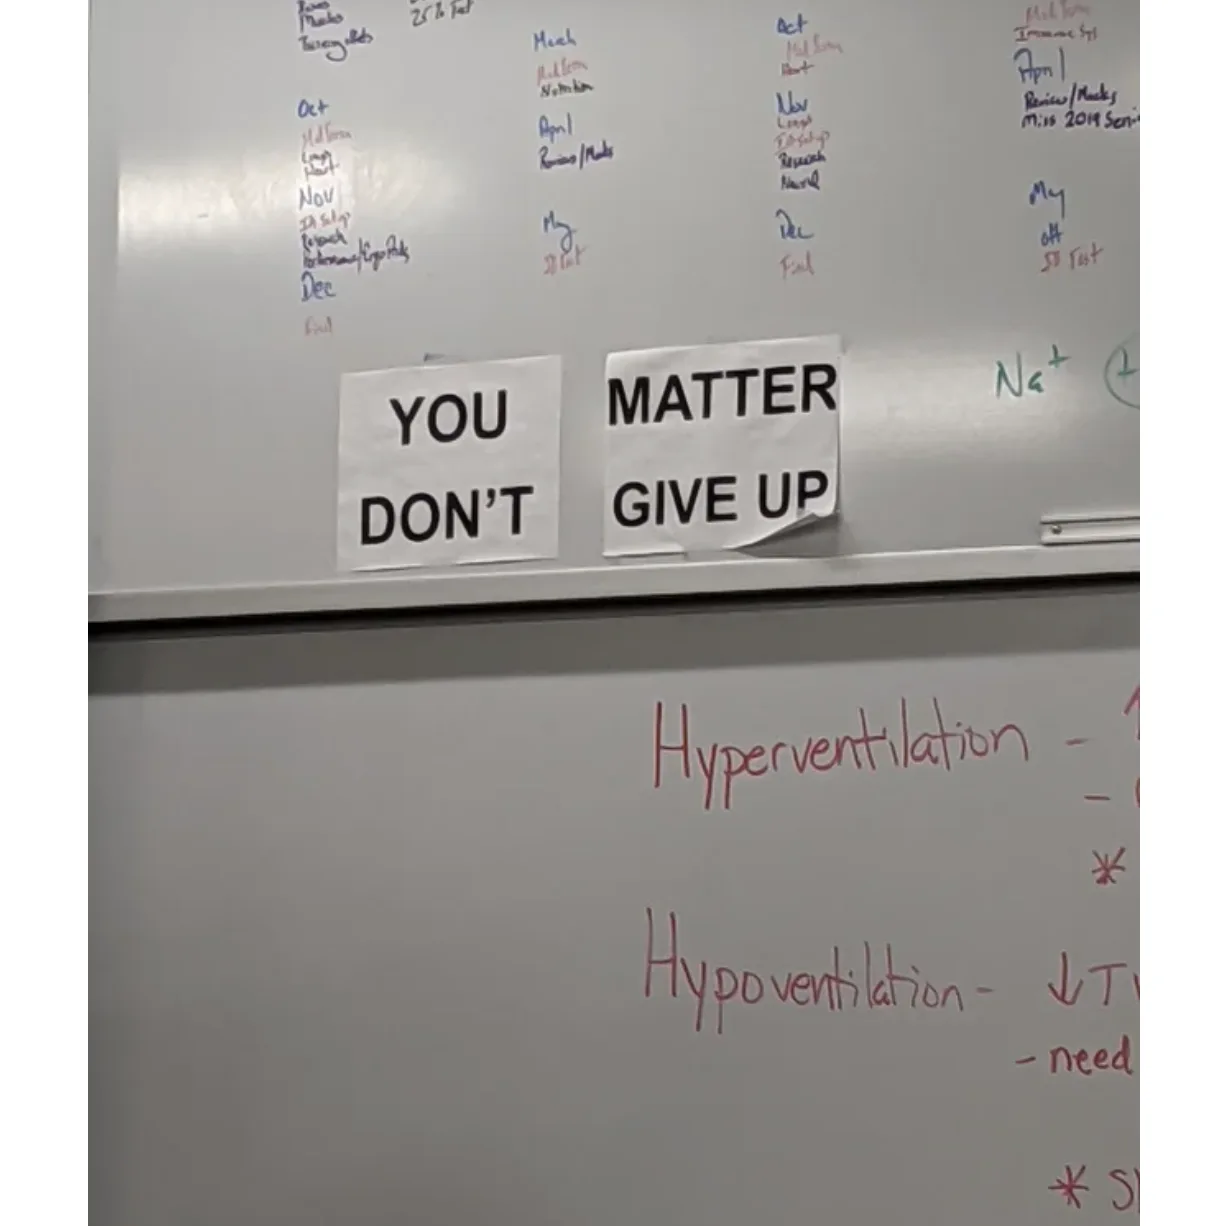 25% Test
Oct
Mid Term
Lungs
Heart
Nov
IA Setup
Research
Dec
Final
March
Mid Term
Nutrition
April
Review/Mocks
May
IB Test
Oct
Mid Term
Heart
Nov
Lungs
IA Setup
Research
Dec
Final
Mid Term
Immune Sys
April
Review/Mocks
Miss 2019 Seni
May
off
IB Test
YOU MATTER
DON'T GIVE UP
Na+ +
Hyperventilation - ↑
-
*
Hypoventilation - ↓ T
- need
* S